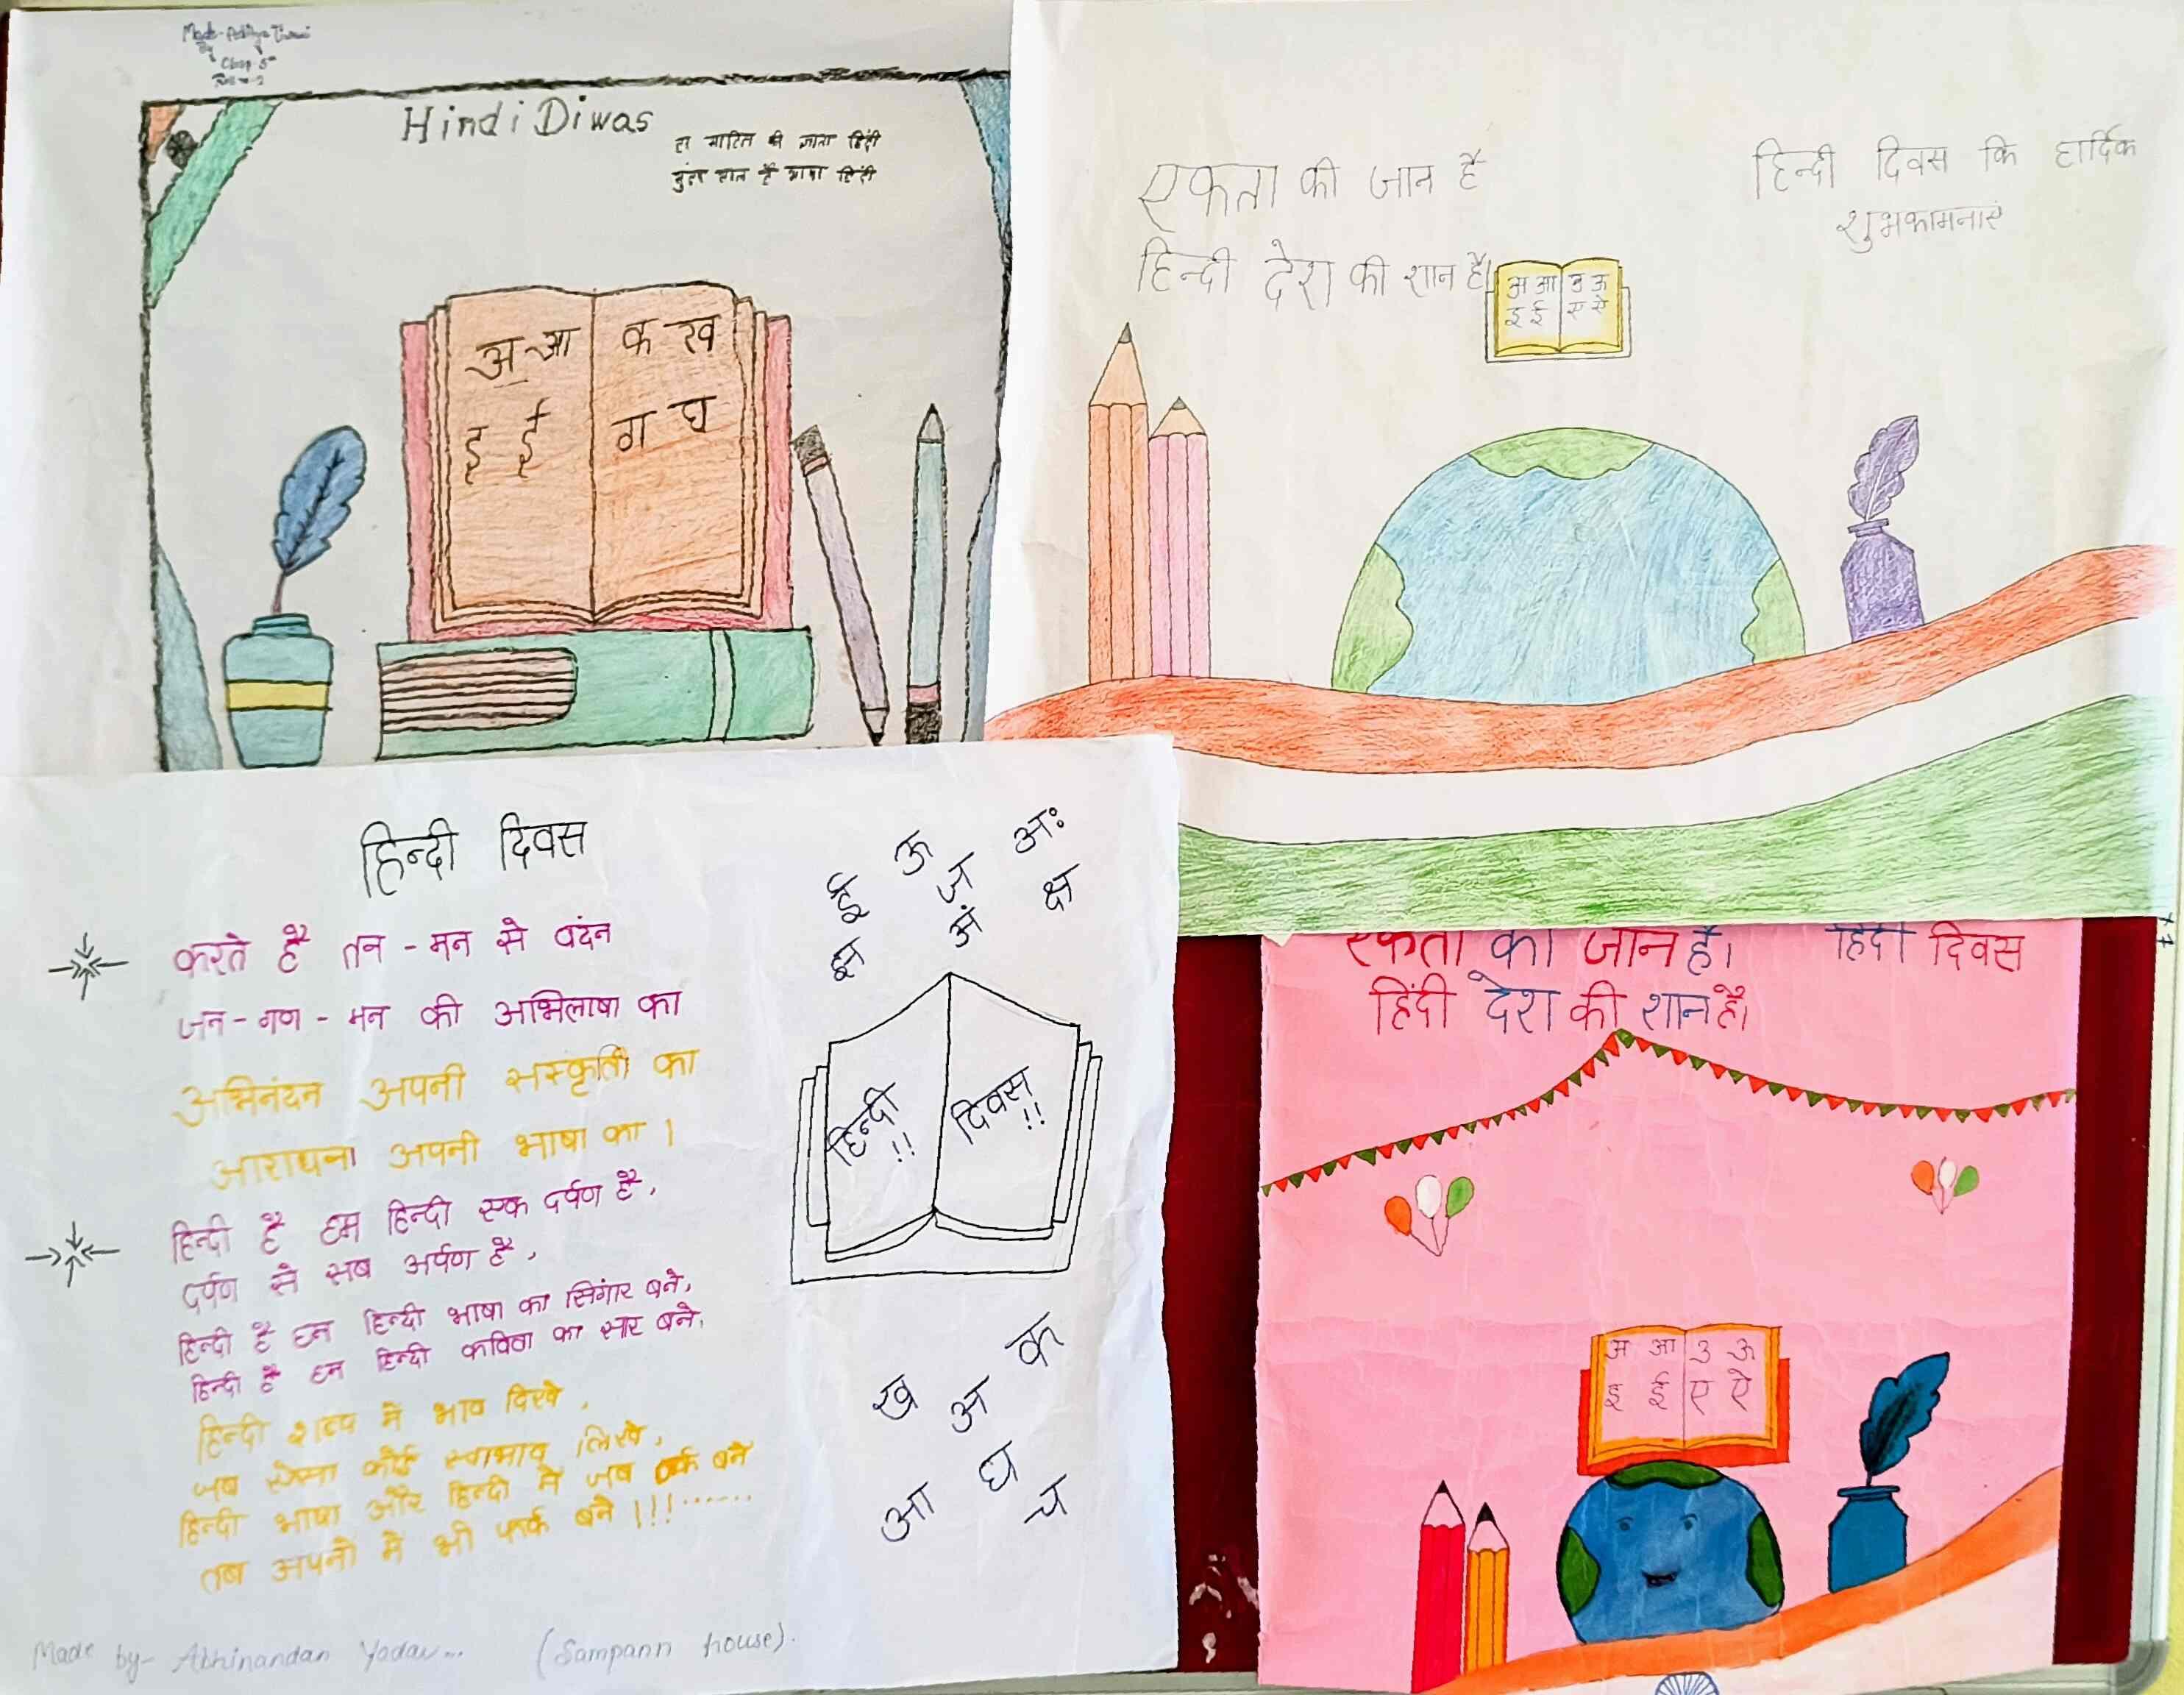 Made-
By
Class-5th
Hindi Diwas
हिंदी
है भाषा हिंदी
अ आ क ख
इ ई ग घ
एकता की जान है
हिन्दी देश की शान है।
हिन्दी दिवस कि हार्दिक
शुभकामनाएं
अ आ उ ऊ
इ ई ए ऐ
हिन्दी दिवस
करते है तन - मन से वदंन
जन - गण - मन की अभिलाषा का
अभिनंदन अपनी सस्कृती का
आराधना अपनी भाषा का ।
हिन्दी है हम हिन्दी एक दर्पण है,
दर्पण से सब अर्पण है,
हिन्दी है हम हिन्दी भाषा का सिगांर बने,
हिन्दी है हम हिन्दी कविता का सार बने,
हिन्दी में भाव दिखे,
जब ऐसा कोई स्वाभाव लिखे,
हिन्दी भाषा और हिन्दी में जब फर्क बने
तब अपनो में भी फर्क बने ।!!.......
ऊ अः
ई ज क्ष
ज्ञ अं
हिन्दी !!
दिवस !!
क
ख अ
घ
आ च
Made by- Abhinandan Yadav... (Sampann house).
एकता की जान है। हिंदी दिवस
हिंदी देश की शान है।
अ आ उ ऊ
इ ई ए ऐ